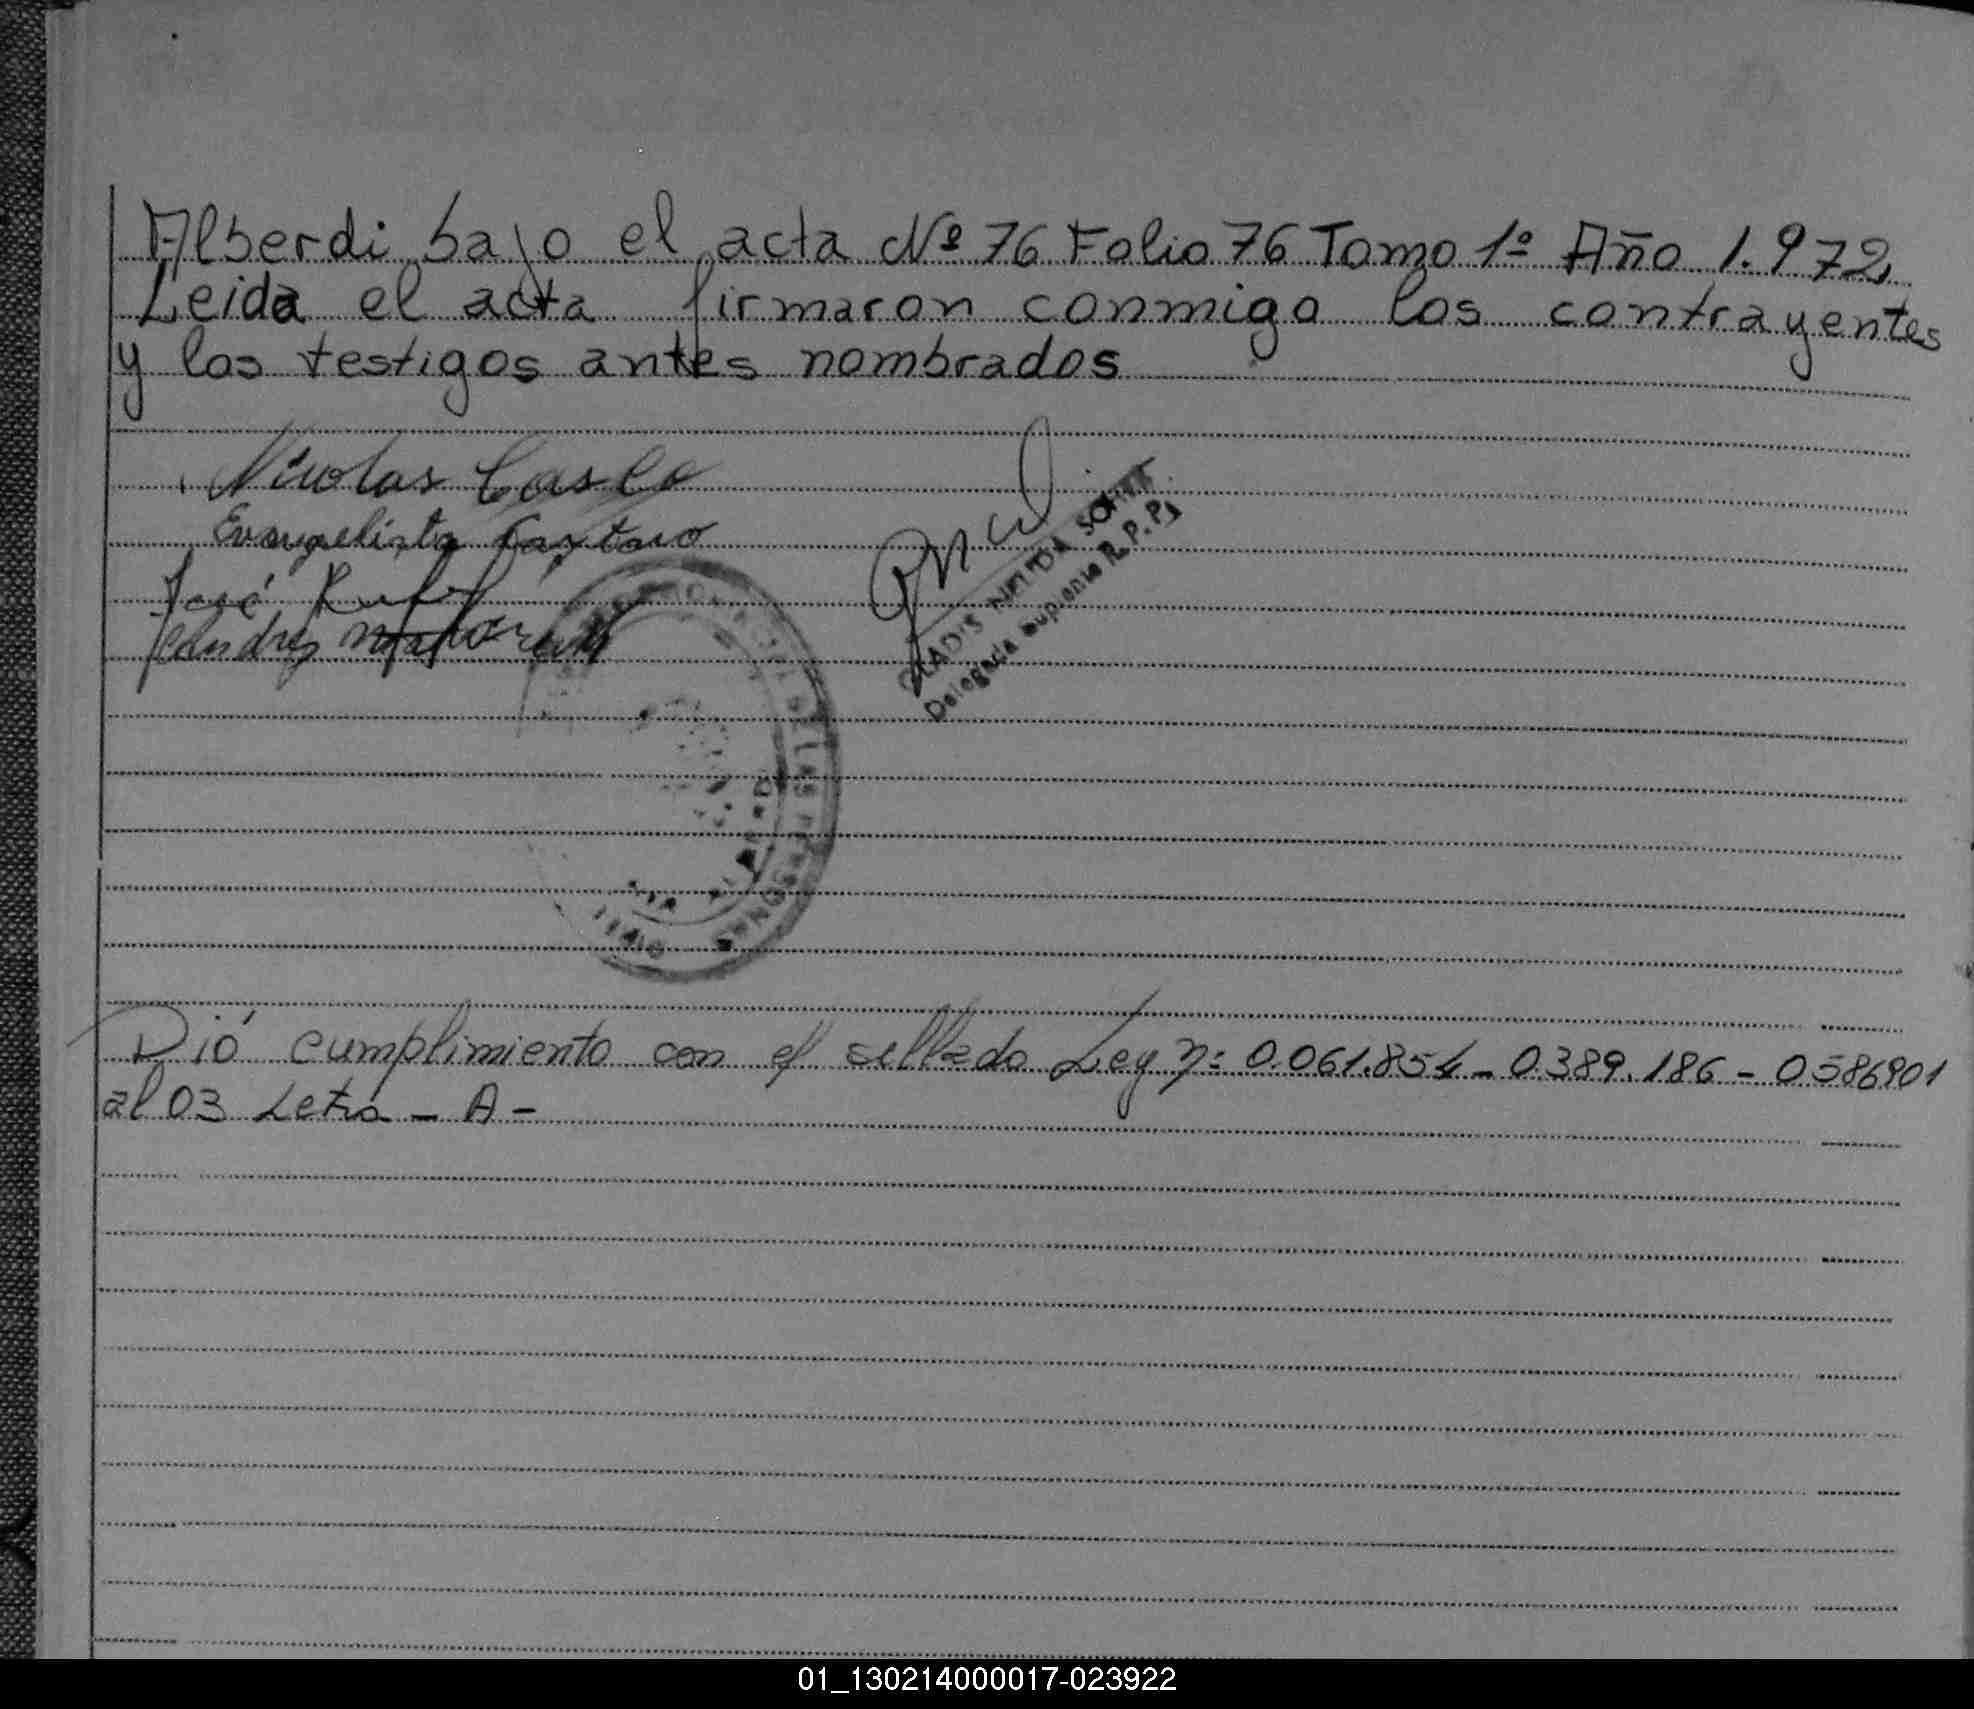 Alberdi bajo el acta Nº 76 Folio 76 Tomo 1º Año 1.972
Leida el acta firmaron conmigo los contrayentes
y los testigos antes nombrados
Nicolas
Evangelista
José
GLADIS NELIDA
Delegada Suplente R. P. P.
Dió cumplimiento con el sellado Ley n: 0.061.854 - 0389.186 - 0586901
al 03 Letra - A -
01_130214000017-023922